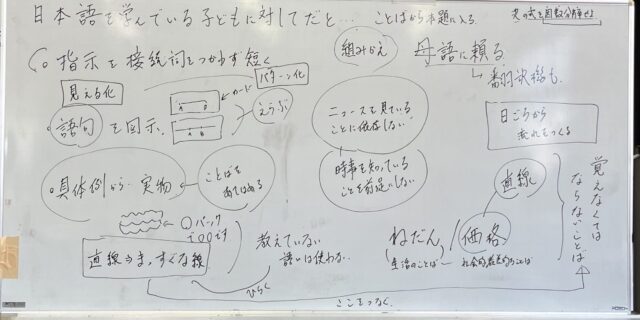 日本語を学んでいる子どもに対してだと… ことばから本題に入る
次の式を因数分解せよ
指示を接続詞をつかわず短く
組みかえ
母語に頼る
翻訳機も
見える化
カード
パターン化
えらぶ
語句を図示
A B
ニュースを見ている
ことに依存しない
日ごろから
流れをつくる
具体例から 実物
ことばを
あてはめる
時事を知っている
ことを前提にしない
直線
覚えなくては
ならないことば
〇パック
で〇〇です
直線⇒まっすぐな線
教えていない
語いは使わない
ねだん
生活のことば
価格
ひらく
ここをつなぐ